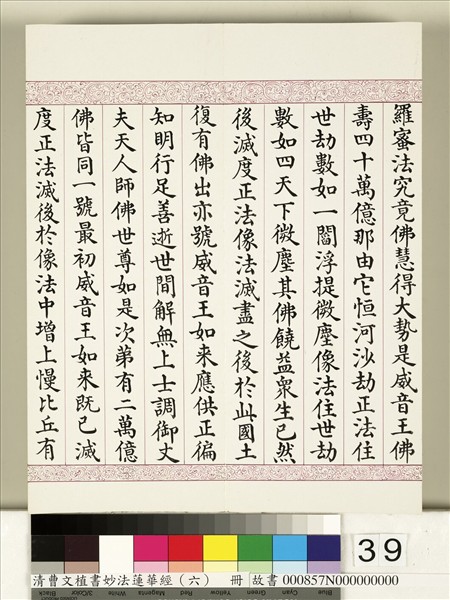 羅蜜法究竟佛慧得大勢是威音王佛
壽四十萬億那由它恒河沙劫正法住
世劫數如一閻浮提微塵像法住世劫
數如四天下微塵其佛饒益眾生已然
後滅度正法像法滅盡之後於此國土
復有佛出亦號威音王如來應供正徧
知明行足善逝世間解無上士調御丈
夫天人師佛世尊如是次第有二萬億
佛皆同一號最初威音王如來既已滅
度正法滅後於像法中增上慢比丘有
39
Black
3/Color
White
Magenta
Red
Yellow
Green
Cyan
Blue
清曹文植書妙法蓮華經（六） 冊 故書 000857N000000000